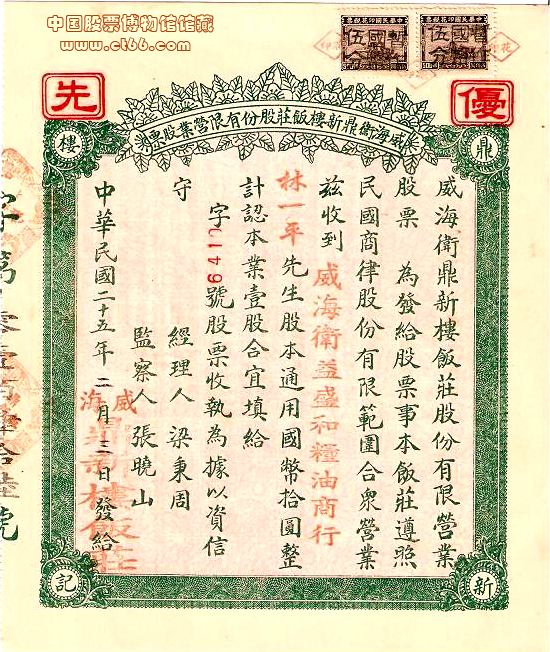 中国股票博物馆馆藏
www.ct66.com
優先
威海衛鼎新樓飯莊股份有限營業股票
鼎
新
樓
記
威海衛鼎新樓飯莊股份有限營業
股票 為發給股票事本飯莊遵照
民國商律股份有限範圍合衆營業
茲收到 威海衛益盛和糧油商行
林一平先生股本通用國幣拾圓整
計認本業壹股合宜填給
字 6410 號股票收執為據以資信
守
經理人 梁秉周
監察人 張曉山
中華民國二十五年二月三日發給
威海
鼎新樓飯莊